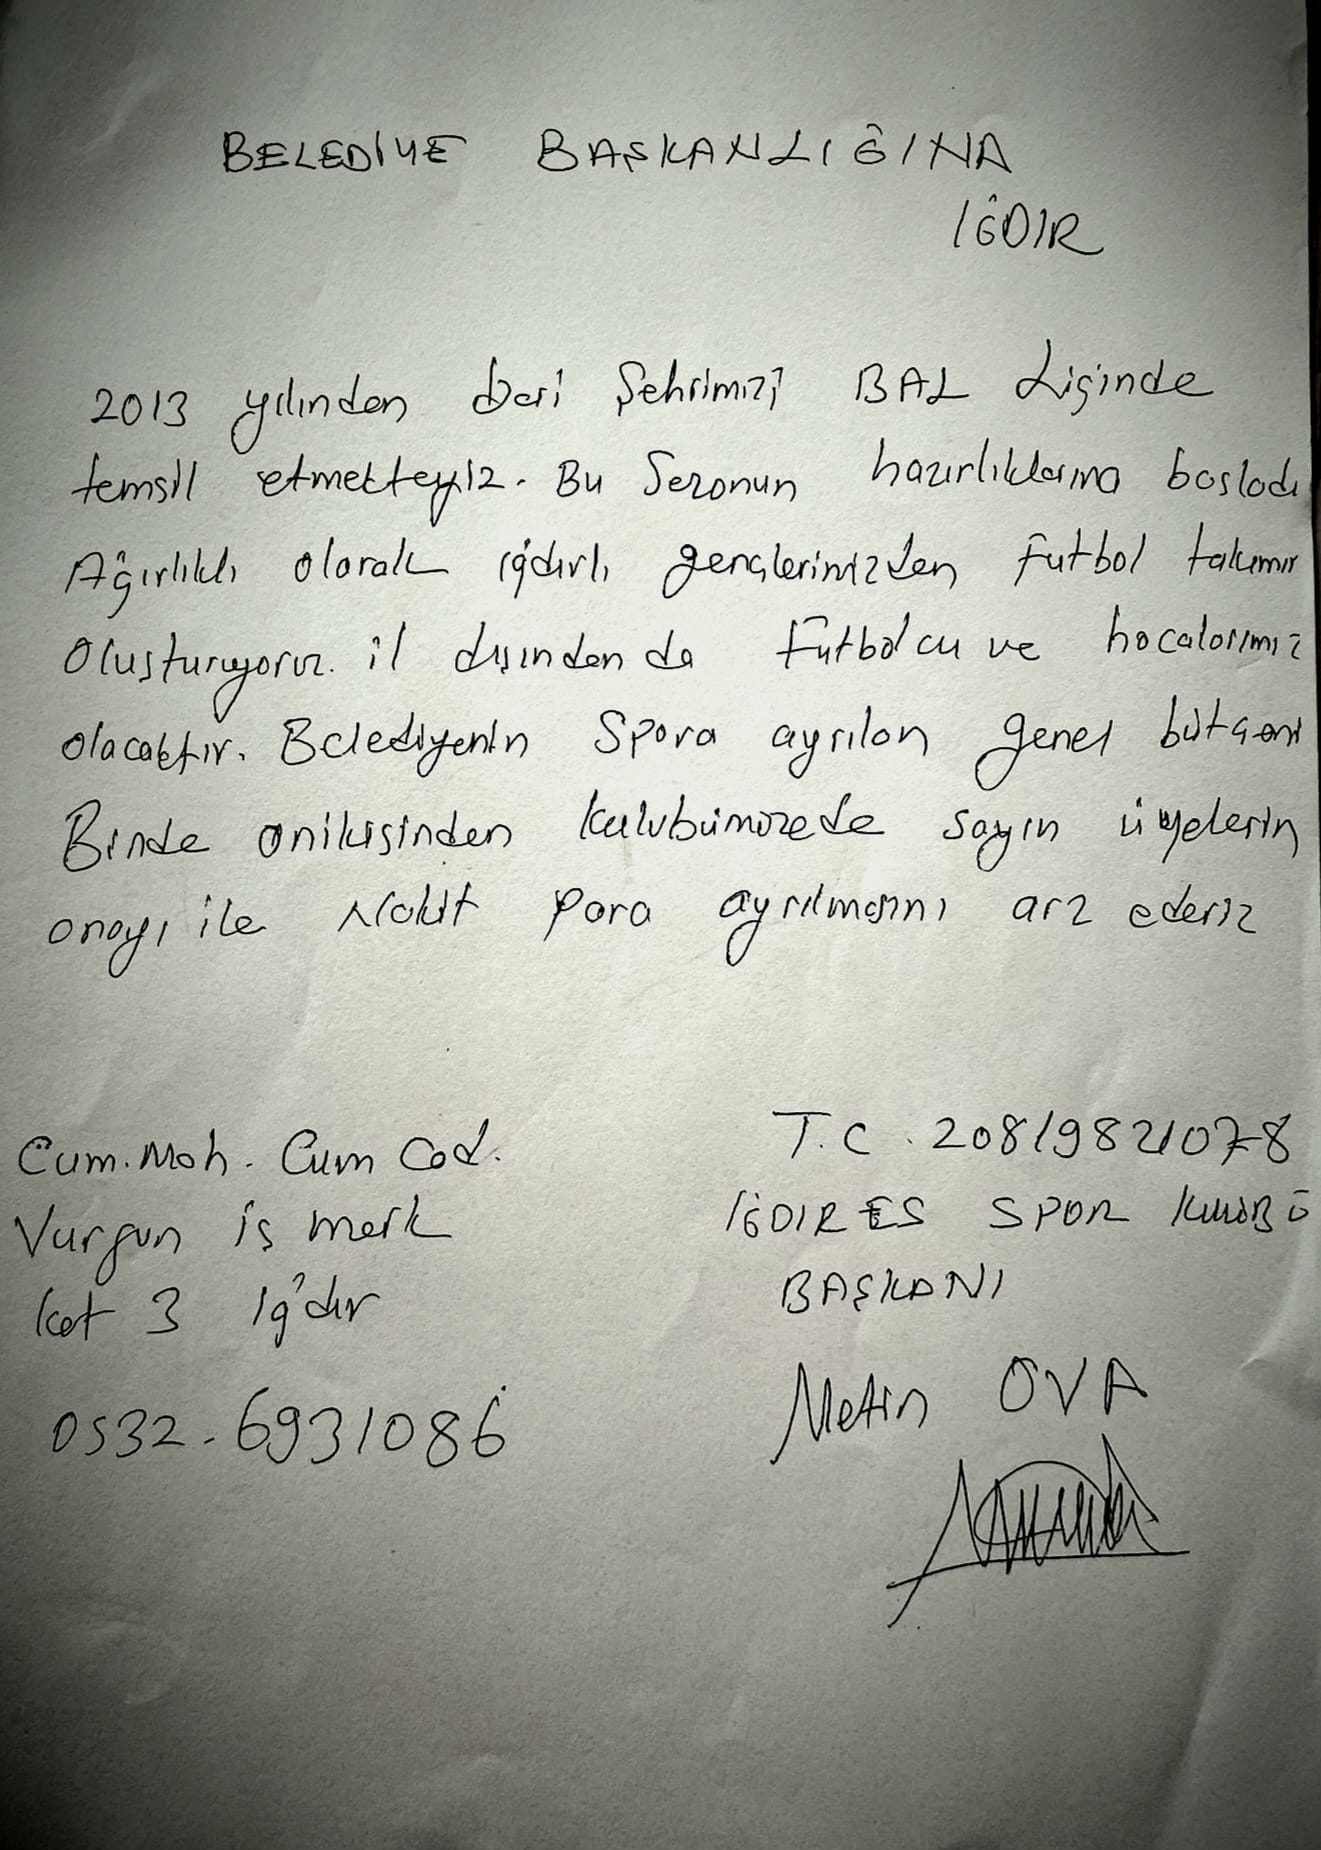 BELEDİYE BAŞKANLIĞINA
IĞDIR
2013 yılından beri Şehrimizi BAL Liginde
temsil etmekteyiz. Bu Sezonun hazırlıklarına başladı
Ağırlıklı olarak ığdırlı gençlerimizden futbol takımı
oluşturuyoruz. il dışından da Futbolcu ve hocalarımız
olacaktır. Belediyenin Spora ayrılan genel bütçeni
Binde onikisinden kulubümüzede sayın üyelerin
onayı ile Nakit para ayrılmasını arz ederiz
Cum. Mah. Cum Cad.
Vurgun iş merk
kat 3 Iğdır
0532. 6931086
T.C. 20819821078
IĞDIR ES SPOR KULÜBÜ
BAŞKANI
Metin OVA